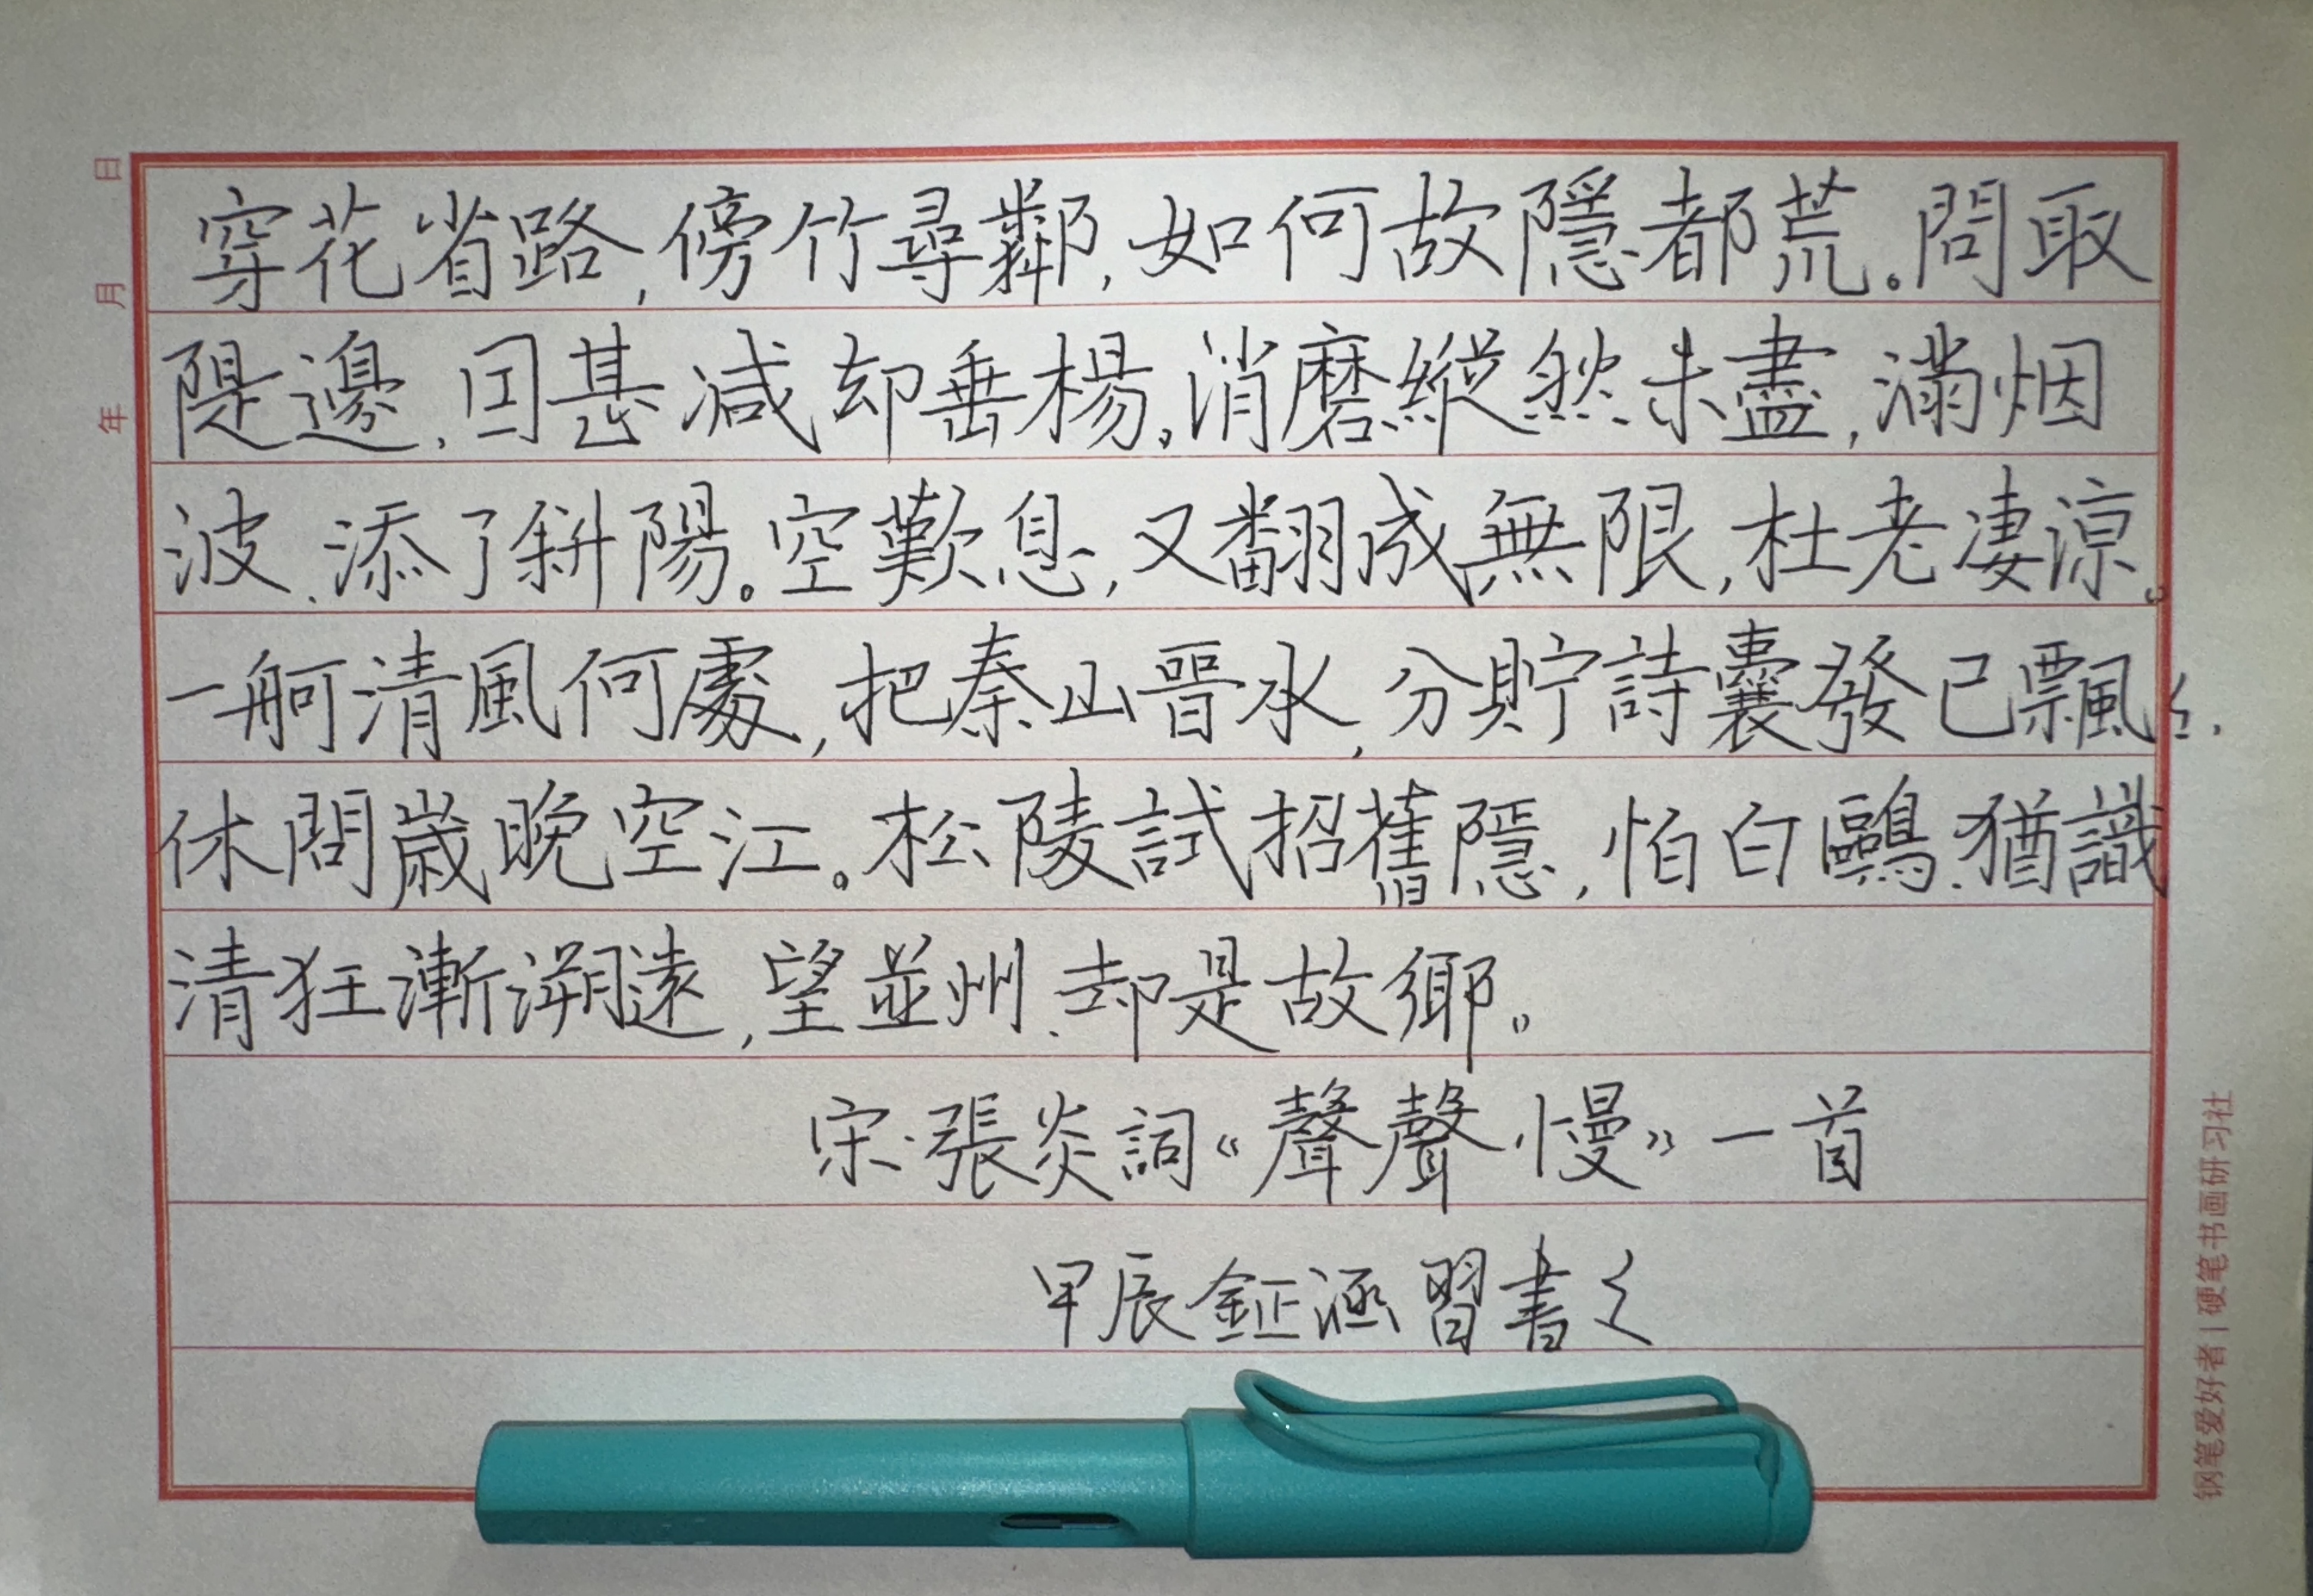 穿花省路,傍竹尋鄰,如何故隱都荒。問取
隄邊,因甚減却垂楊。消磨縱然未盡,滿烟
波、添了斜陽。空歎息,又翻成無限,杜老淒涼。
一舸清風何處,把秦山晉水,分貯詩囊發已飄々.
休問歲晚空江。松陵試招舊隱,怕白鷗、猶識
清狂漸溯遠,望並州、却是故鄉。
宋·張炎詞《聲聲慢》一首
甲辰鉦涵習書之
年 月 日
钢笔爱好者|硬笔书画研习社